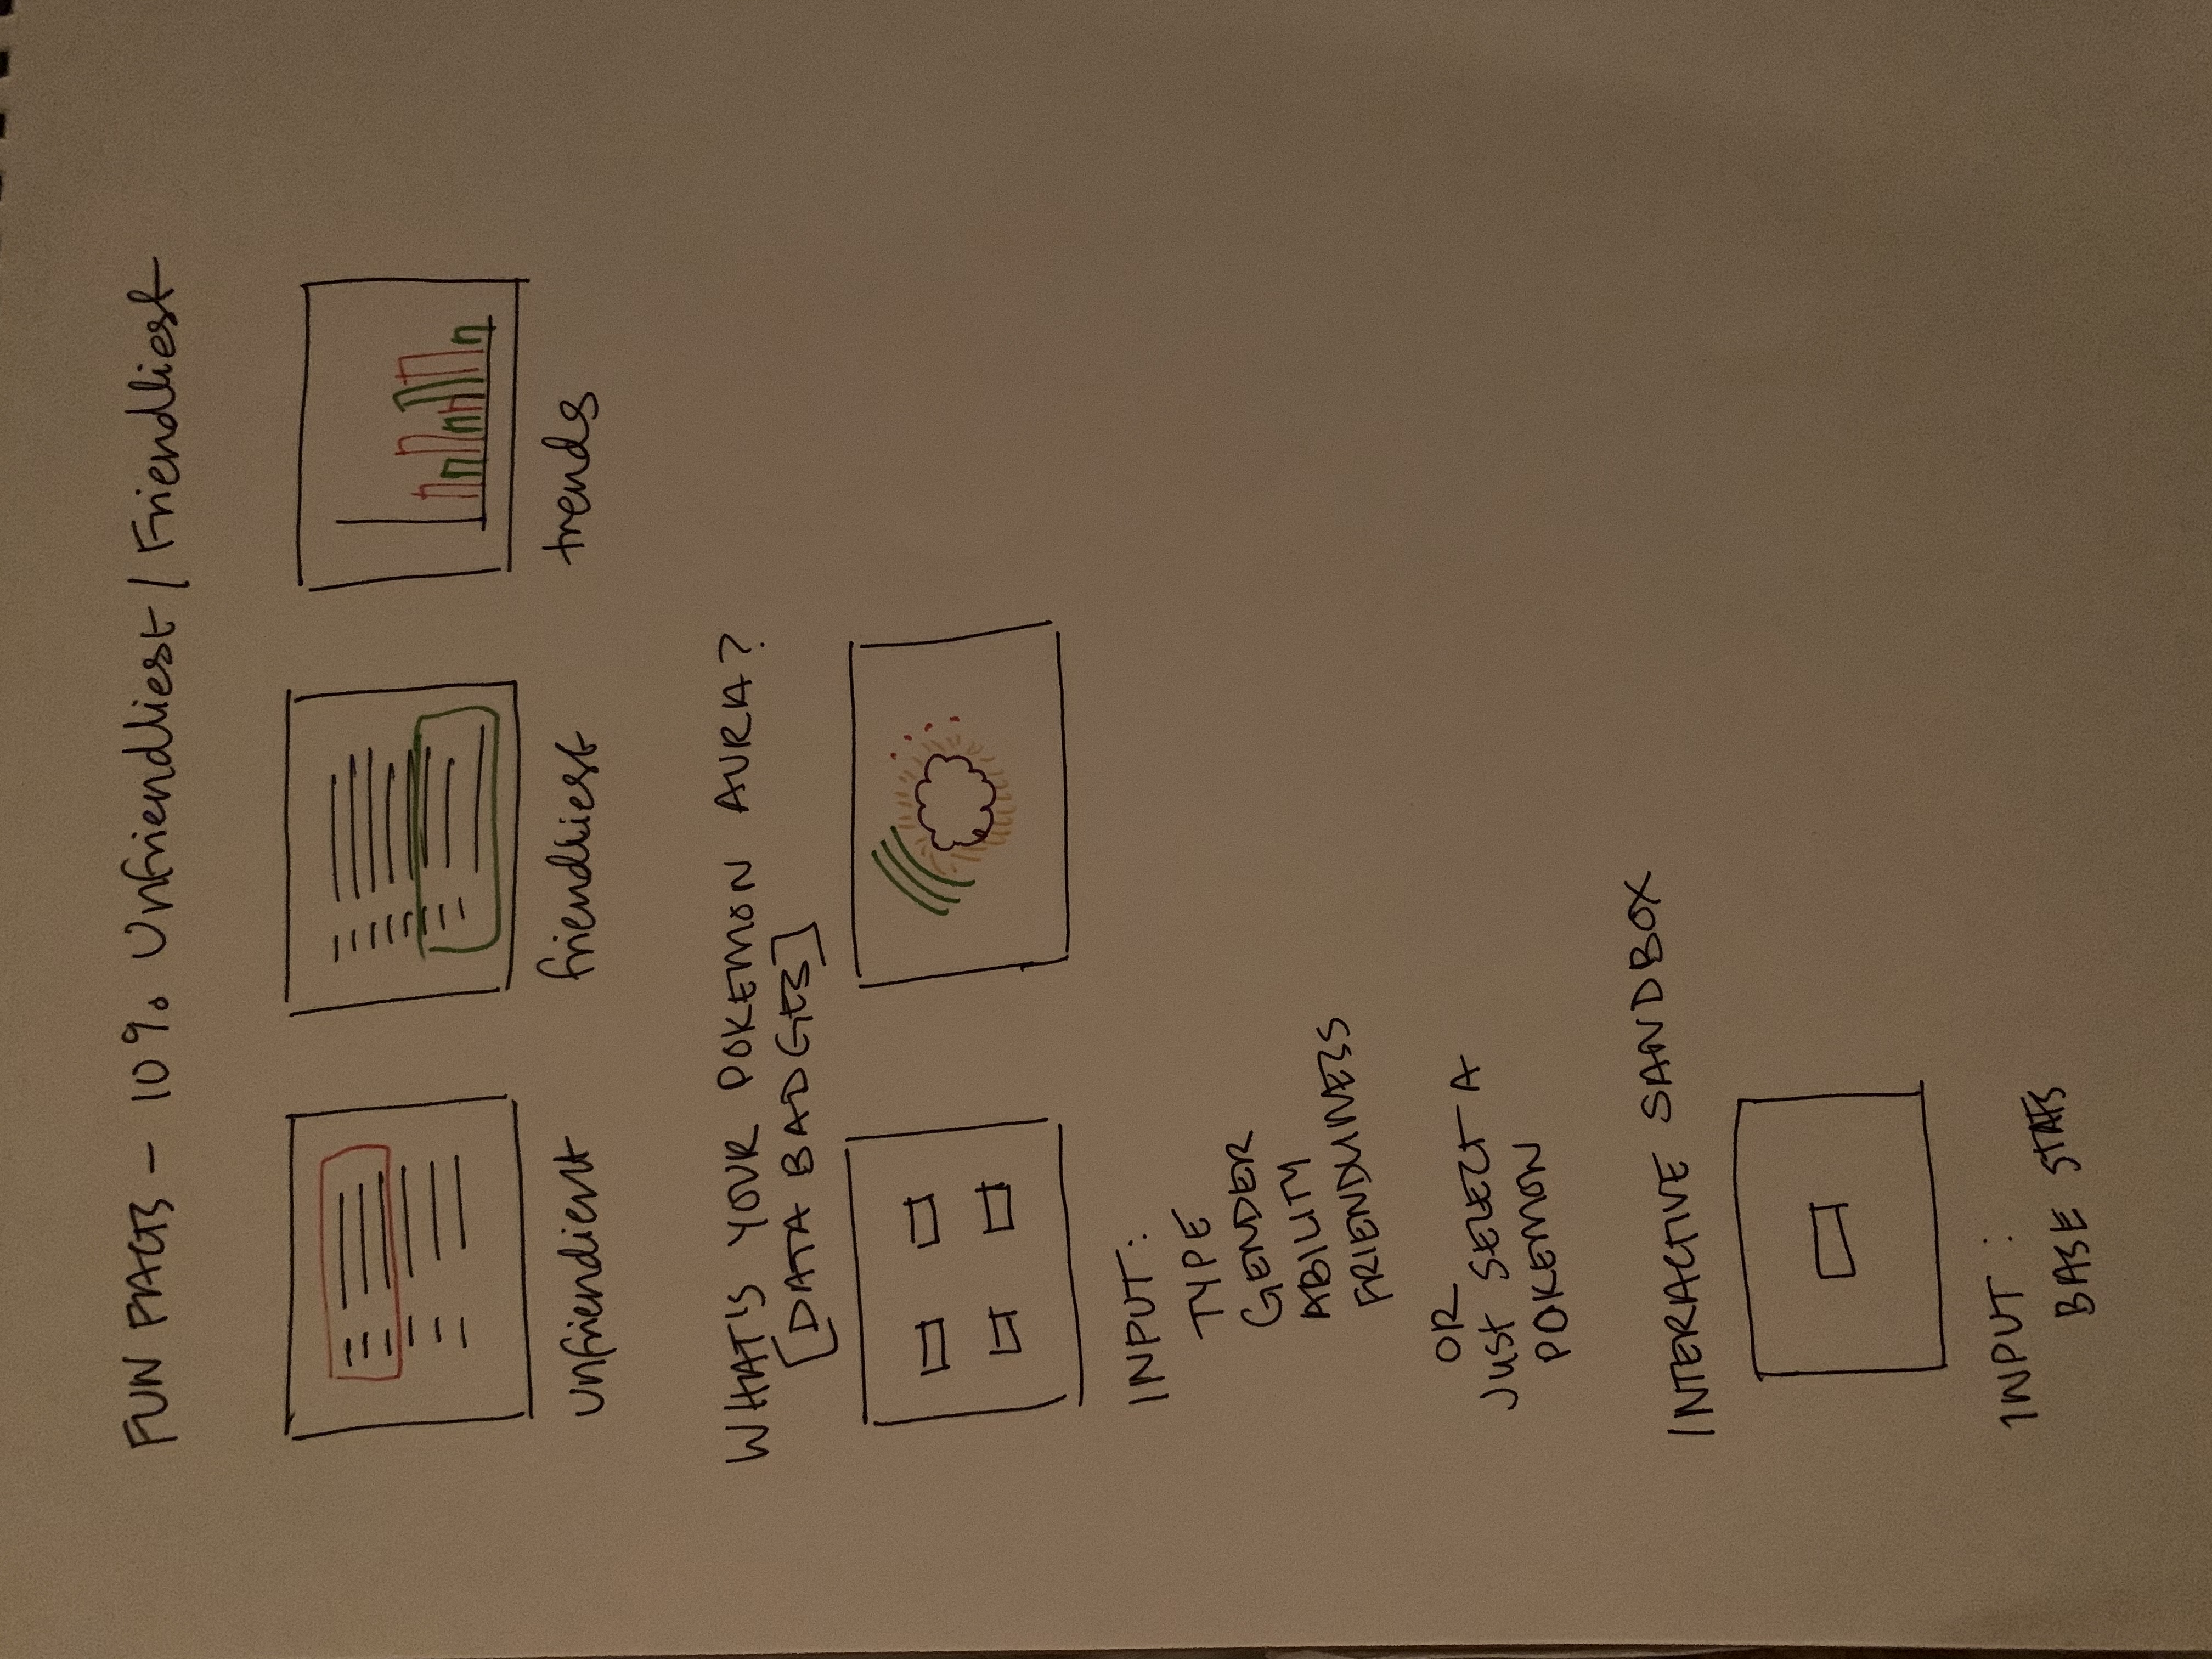 FUN FACTS - 10% Unfriendliest / Friendliest
unfriendient
friendliest
trends
WHAT'S YOUR POKEMON AURA?
[DATA BADGES]
INPUT:
TYPE
GENDER
ABILITY
FRIENDLINESS
OR
Just SELECT A
POKEMON
INTERACTIVE SANDBOX
INPUT :
BASE STATS